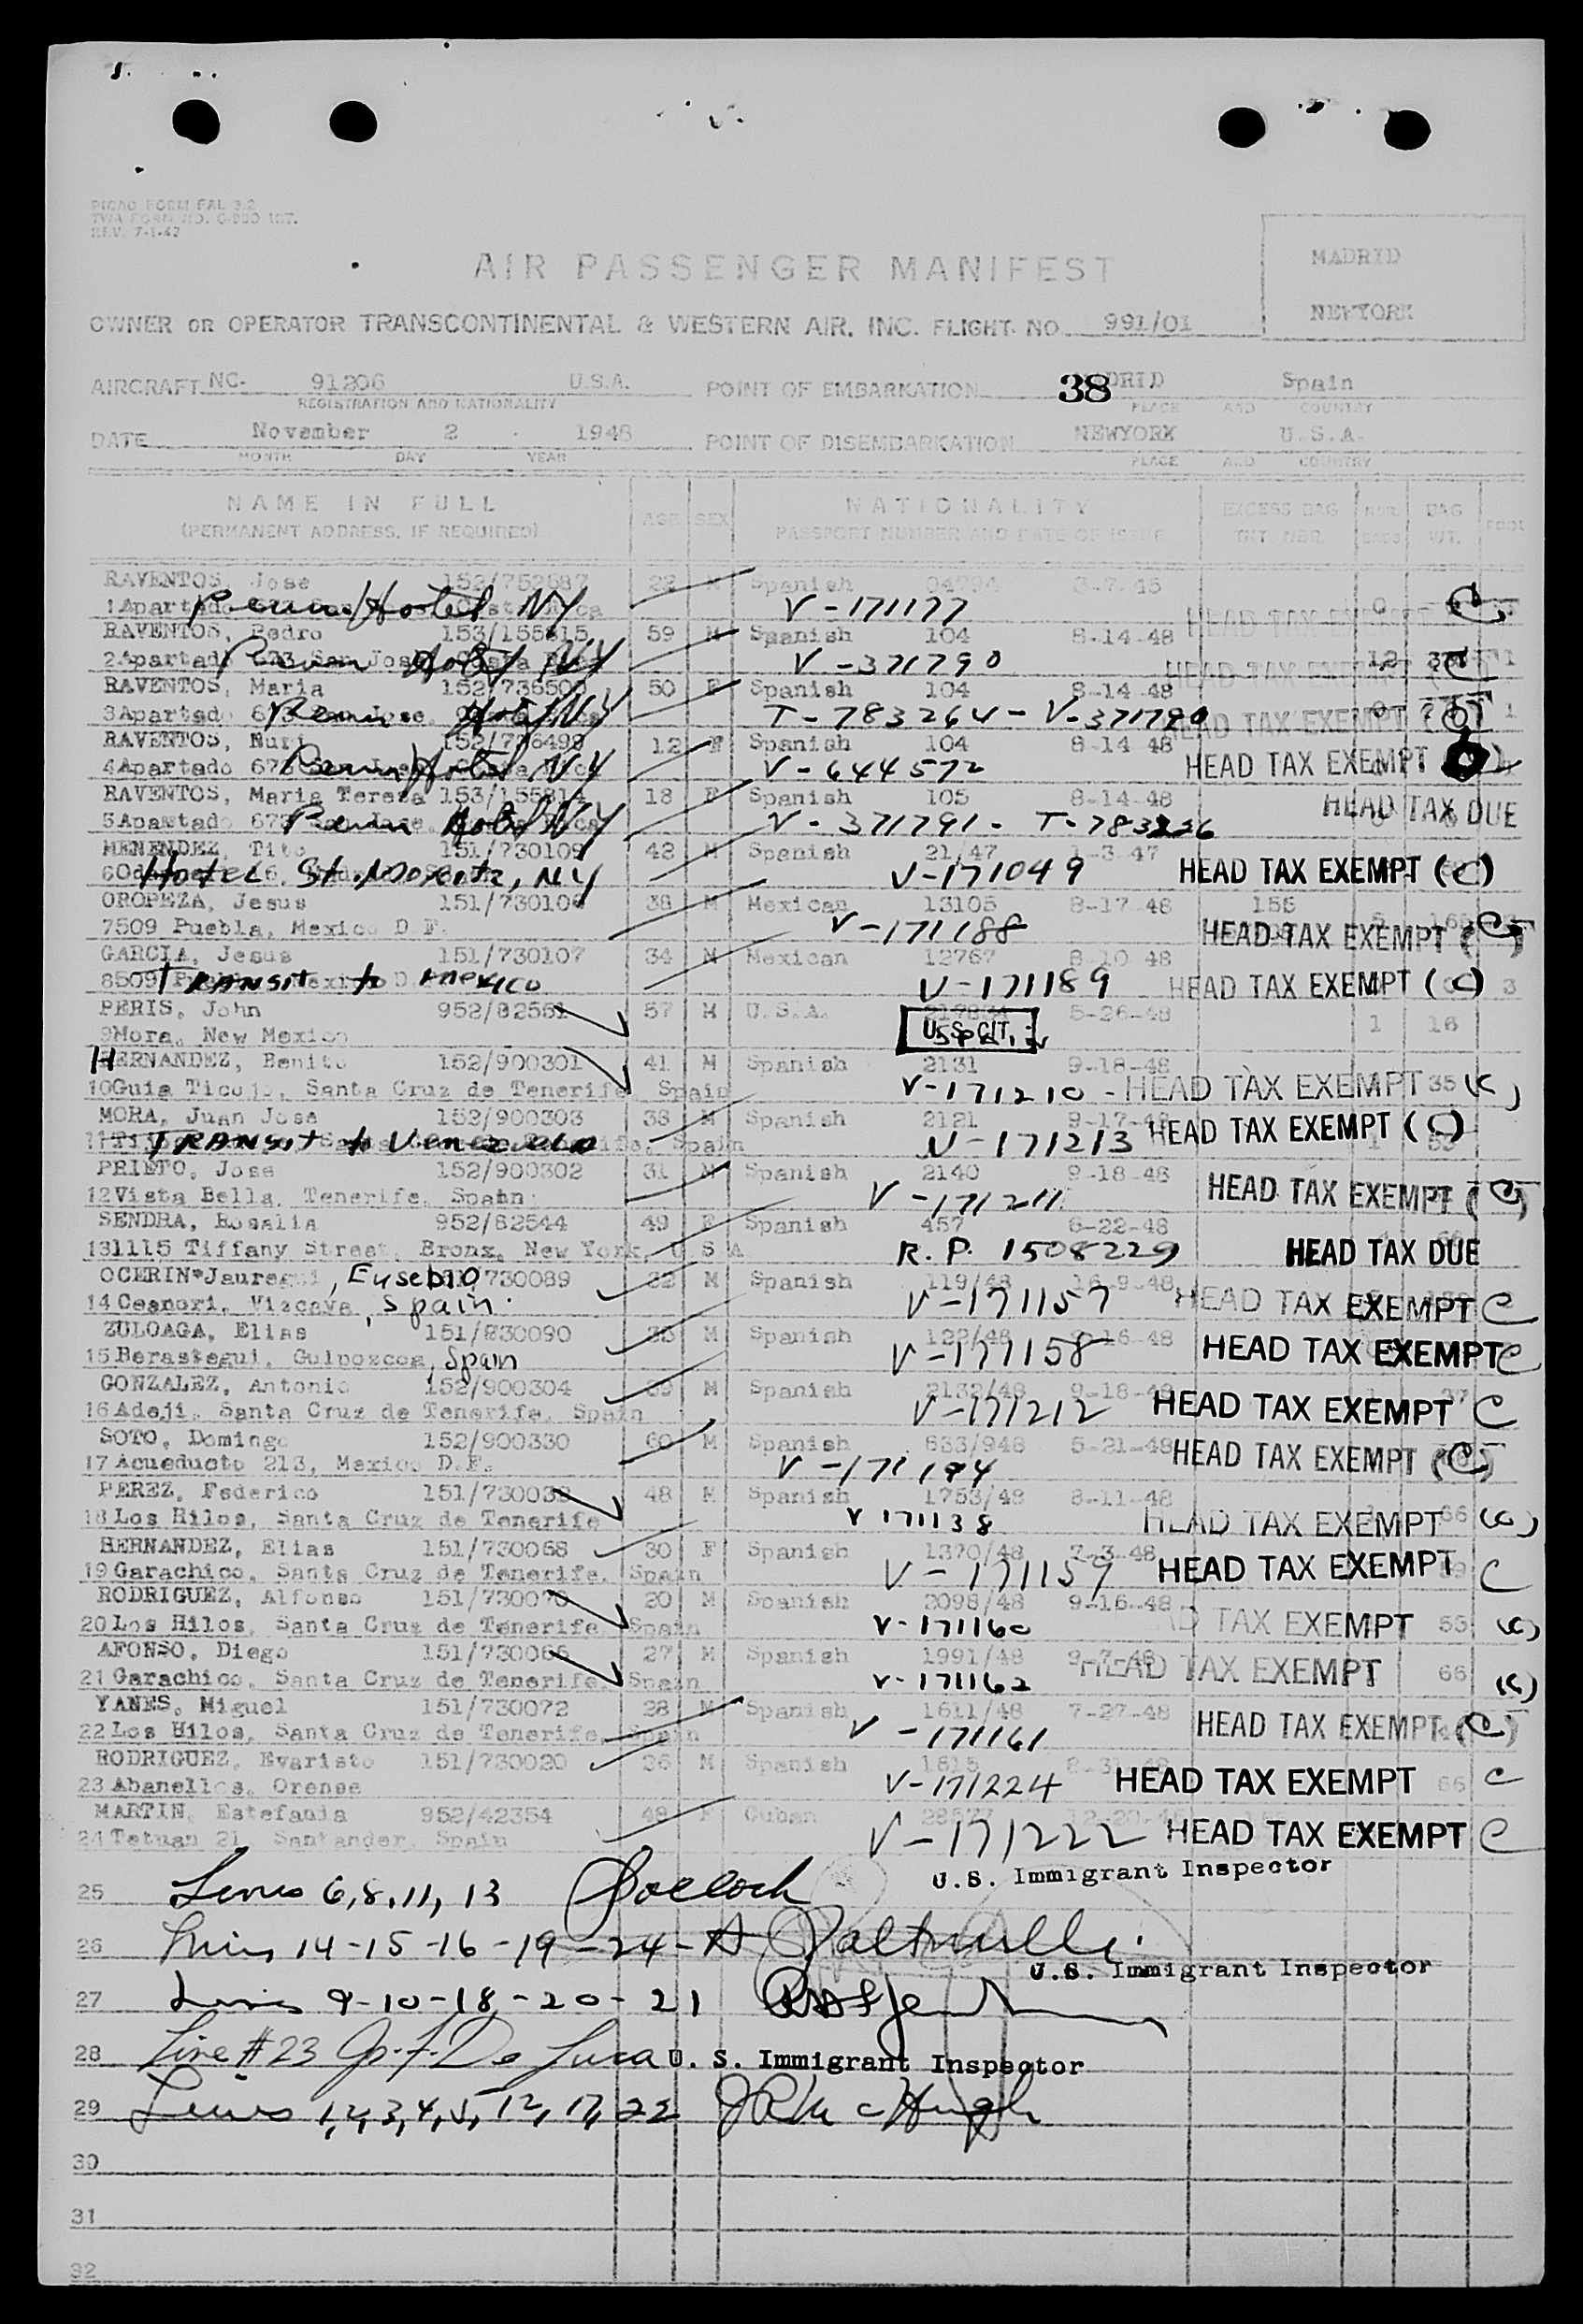 PICAO FORM FAL 3.2
TWA FORM NO. INT.
REV. 7-1-47
AIR PASSENGER MANIFEST
MADRID
NEWYORK
OWNER OR OPERATOR TRANSCONTINENTAL & WESTERN AIR, INC. FLIGHT NO. 991/01
AIRCRAFT NC- 91206 U.S.A. POINT OF EMBARKATION 38 DRID Spain
REGISTRATION AND NATIONALITY PLACE AND COUNTRY
DATE November 2 1948 POINT OF DISEMBARKATION NEWYORK U.S.A.
MONTH DAY YEAR PLACE AND COUNTRY
NAME IN FULL AGE SEX NATIONALITY EXCESS BAG NBR. BAG
(PERMANENT ADDRESS, IF REQUIRED) PASSPORT NUMBER AND DATE OF ISSUE TKT NBR. BAGS WT.
RAVENTOS, Jose 152/752687 22 M Spanish
1 Apartado Hotel NY V-171177 HEAD TAX EXEMPT
RAVENTOS, Pedro 153/155815 59 M Spanish 104 8-14-48
2 Apartado 673 San Jose NY V-371790 HEAD TAX EXEMPT 12 1
RAVENTOS, Maria 152/736500 50 F Spanish 104 8-14 48
3 Apartado Hotel NY T-783264-V-371790 HEAD TAX EXEMPT 1
RAVENTOS, Nuri 152/736499 12 F Spanish 104 8-14 48
4 Apartado 673 Hotel NY V-644572 HEAD TAX EXEMPT
RAVENTOS, Maria Tereza 153/155814 18 F Spanish 105 8-14-48
5 Apartado 673 Hotel NY V-371791- T-783226 HEAD TAX DUE
MENENDEZ, Tito 151/730109 42 M Spanish 21/47 1-3-47
6 Hotel St. Moritz, NY V-171049 HEAD TAX EXEMPT (C)
OROPEZA, Jesus 151/730106 38 M Mexican 13105 8-17-48 155
7509 Puebla, Mexico D F. V-171188 HEAD TAX EXEMPT (C)
GARCIA, Jesus 151/730107 34 M Mexican 12767 8-10 48
8509 TRANSIT to MEXICO V-171189 HEAD TAX EXEMPT (C) 3
PERIS, John 952/82561 57 M U.S.A. 5-26-48
9 Mora, New Mexico U.S. CIT. 1 16
HERNANDEZ, Benito 152/900301 41 M Spanish 2131 9-18-48
10 Guia Ticojo, Santa Cruz de Tenerife Spain V-171210 - HEAD TAX EXEMPT 35 (C)
MORA, Juan Jose 152/900303 38 M Spanish 2121 9-17-48
11 TRANSIT to Venezuela Spain V-171213 HEAD TAX EXEMPT (C)
PRIETO, Jose 152/900302 31 M Spanish 2140 9-18-48
12 Vista Bella, Tenerife, Spain V-171211 HEAD TAX EXEMPT (C)
SENDRA, Rosalia 952/82544 49 F Spanish 457 6-22-48
13 1115 Tiffany Street, Bronx, New York, U S A R.P. 1508229 HEAD TAX DUE
OCERIN-Jauregui, Eusebio 730089 32 M Spanish 119/48 16-9-48
14 Ceanori, Vizcaya, Spain. V-171157 HEAD TAX EXEMPT C
ZULOAGA, Elias 151/830090 M Spanish 122/48 9-16-48
15 Berastegui, Guipozcoa, Spain V-171158 HEAD TAX EXEMPT C
GONZALEZ, Antonio 152/900304 39 M Spanish 2132/48 9-18-48
16 Adeji, Santa Cruz de Tenerife, Spain V-171212 HEAD TAX EXEMPT C
SOTO, Domingo 152/900330 60 M Spanish 633/948 5-21-48
17 Acueducto 213, Mexico D.F. V-171194 HEAD TAX EXEMPT (C)
PEREZ, Federico 151/730038 48 M Spanish 1753/48 8-11-48
18 Los Hilos, Santa Cruz de Tenerife V 171138 HEAD TAX EXEMPT 66 (C)
HERNANDEZ, Elias 151/730068 30 F Spanish 1370/48 7-3-48
19 Garachico, Santa Cruz de Tenerife, Spain V-171159 HEAD TAX EXEMPT C
RODRIGUEZ, Alfonso 151/730070 20 M Spanish 2098/48 9-16-48
20 Los Hilos, Santa Cruz de Tenerife Spain V-171160 HEAD TAX EXEMPT 55 (C)
AFONSO, Diego 151/730066 27 M Spanish 1991/48 9-7-48
21 Garachico, Santa Cruz de Tenerife, Spain V-171162 HEAD TAX EXEMPT 66 (C)
YANES, Miguel 151/730072 28 M Spanish 1611/48 7-27-48
22 Los Hilos, Santa Cruz de Tenerife, Spain V-171161 HEAD TAX EXEMPT (C)
RODRIGUEZ, Evaristo 151/730020 26 M Spanish 1815 8-31-48
23 Abanellos, Orense V-171224 HEAD TAX EXEMPT 66 C
MARTIN, Estefania 952/42354 48 F Cuban
24 Tetuan 21, Santander, Spain V-171222 HEAD TAX EXEMPT C
U.S. Immigrant Inspector
25 Lines 6,8,11,13
26 Lines 14-15-16-19-24-
U.S. Immigrant Inspector
27 Lines 9-10-18-20-21
28 Line #23 De Luca U. S. Immigrant Inspector
29 Lines 1,2,3,4,5,12,17,22
30
31
32